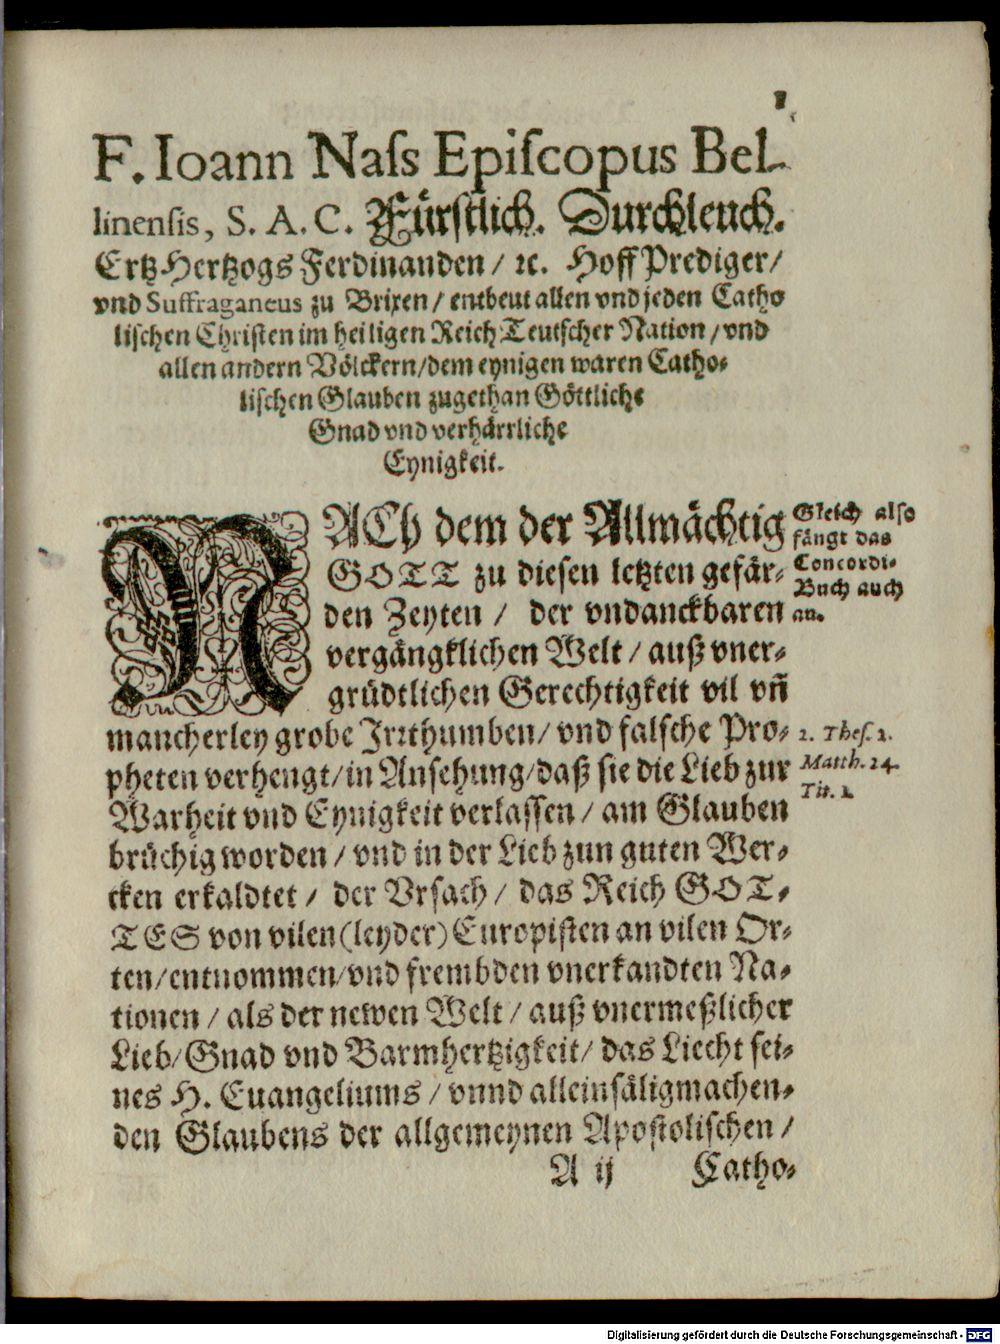 1
F. Ioann Naſs Epiſcopus Bel-
linenſis, S. A. C. Fürſtlich. Durchleuch.
Ertz-Hertzogs Ferdinanden / ꝛc. Hoff Prediger /
vnd Suffraganeus zu Brixen / entbeut allen vnd jeden Catho
liſchen Chriſten im heiligen Reich Teutſcher Nation / vnd
allen andern Völckern / dem eynigen waren Catho-
liſchen Glauben zugethan Göttliche
Gnad vnd verhärrliche
Eynigkeit.
NACh dem der Allmächtig
GOTT zu dieſen letzten gefär-
den Zeyten / der vndanckbaren
vergängklichen Welt / auß vner-
grüdtlichen Gerechtigkeit vil vñ
mancherley grobe Jrꝛthumben / vnd falſche Pro-
pheten verhengt / in Anſehung / daß ſie die Lieb zur
Warheit vnd Eynigkeit verlaſſen / am Glauben
brüchig worden / vnd in der Lieb zun guten Wer-
cken erkaldtet / der Vrſach / das Reich GOT-
TES von vilen (leyder) Europiſten an vilen Or-
ten / entnommen / vnd frembden vnerkandten Na-
tionen / als der newen Welt / auß vnermeßlicher
Lieb / Gnad vnd Barmhertzigkeit / das Liecht ſei-
nes H. Euangeliums / vnnd alleinſäligmachen-
den Glaubens der allgemeynen Apoſtoliſchen /
A ij Catho-
Gleich alſo
fängt das
Concordi-
Buch auch
an.
2. Theſ. 2.
Matth. 24.
Tit. 1.
Digitalisierung gefördert durch die Deutsche Forschungsgemeinschaft - DFG